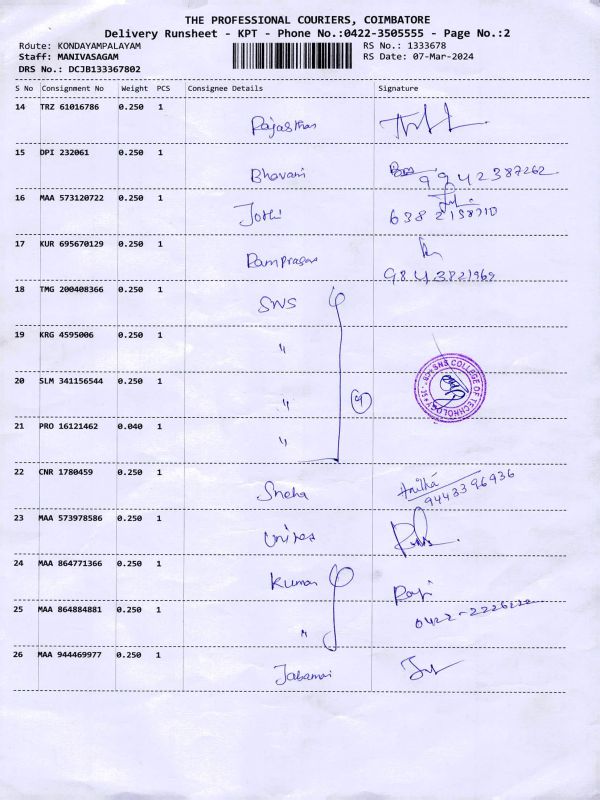 THE PROFESSIONAL COURIERS, COIMBATORE
Delivery Runsheet - KPT - Phone No.:0422-3505555 - Page No.:2
Route: KONDAYAMPALAYAM RS No.: 1333678
Staff: MANIVASAGAM RS Date: 07-Mar-2024
DRS No.: DCJB133367802
S No Consignment No Weight PCS Consignee Details Signature
14 TRZ 61016786 0.250 1 Rajasthan
15 DPI 232061 0.250 1 Bhavani 9942387262
16 MAA 573120722 0.250 1 Jothi
638 2138710
17 KUR 695670129 0.250 1 Ramprasad
9843821969
18 TMG 200408366 0.250 1 SNS
19 KRG 4595006 0.250 1 "
20 SLM 341156544 0.250 1 " 4
SNS COLLEGE OF TECHNOLOGY
21 PRO 16121462 0.040 1 "
22 CNR 1780459 0.250 1 Sneha Anitha
9443396936
23 MAA 573978586 0.250 1
24 MAA 864771366 0.250 1 Kumar Raji
25 MAA 864884881 0.250 1 " 0422-2226222
26 MAA 944469977 0.250 1 Jabamani